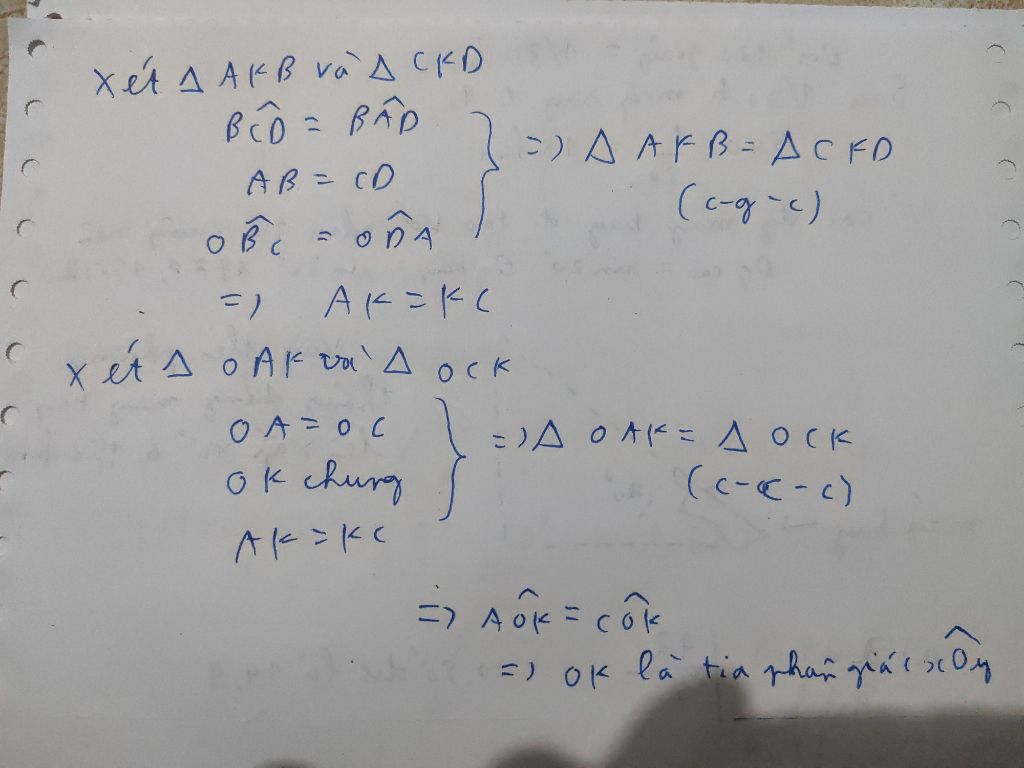 Xét Δ AKB và Δ CKD
BĈD = BÂD
AB = CD
OB̂C = OD̂A
=> Δ AKB = Δ CKD
(c-g-c)
=> AK = KC
Xét Δ OAK và Δ OCK
OA = OC
OK chung
AK = KC
=> Δ OAK = Δ OCK
(c-c-c)
=> AÔK = CÔK
=> OK là tia phân giác xÔy